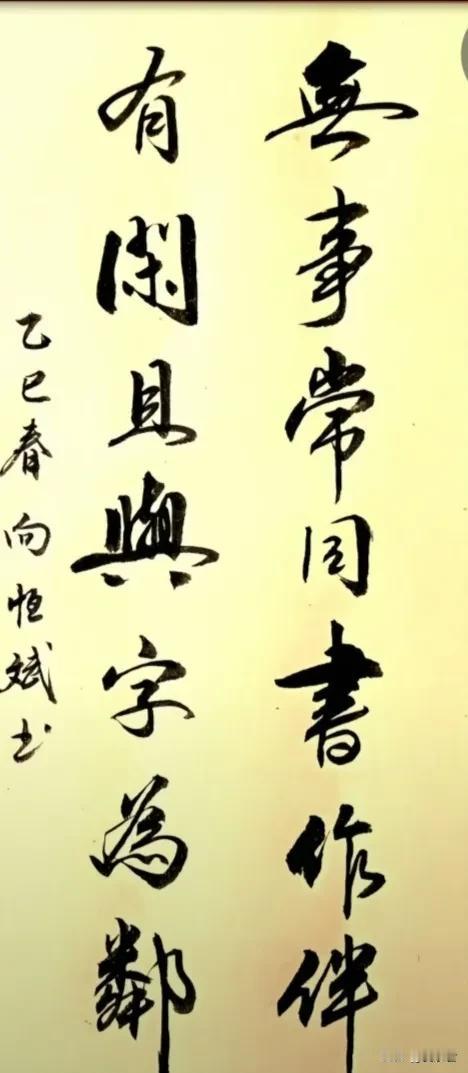 無事常同書作伴
有閑且與字為鄰
乙巳春向恒斌书